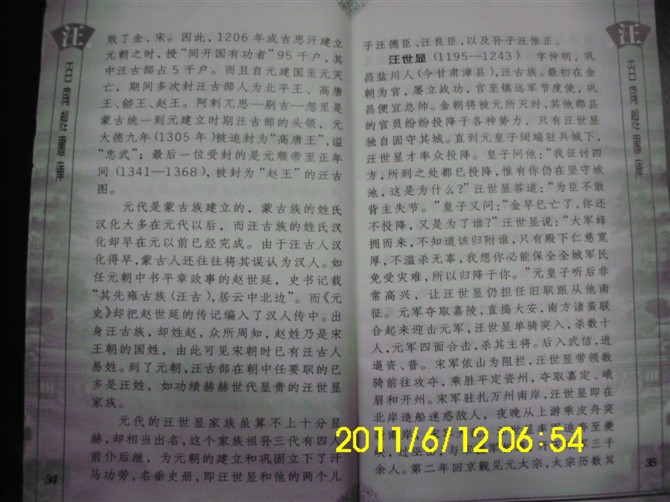 汪
败了金、宋。因此，1206年成吉思汗建立
元朝之时，授“同开国有功者”95千户，其
中汪古部占5千户。而且自元建国至元灭
亡，期间多次封汪古部人为北平王、高唐
王、鄃王、赵王。阿剌兀思—剔吉—忽里是
蒙古统一到元建立时期汪古部的头领，元
大德九年（1305年）被追封为“高唐王”，谥
“忠武”；最后一位受封的是元顺带至正年
间（1341—1368），被封为“赵王”的汪古
图。
元代是蒙古族建立的，蒙古族的姓氏
汉化大多在元代以后，而汪古族的姓氏汉
化却早在元以前已经完成。由于汪古人汉
化得早，蒙古人还往往将其误认为汉人。如
任元朝中书平章政事的赵世延，史书记载
“其先雍古族（汪古），居云中北边”。而《元
史》却把赵世延的传记编入了汉人传中。出
身汪古族，却姓赵，众所周知，赵姓乃是宋
王朝的国姓，由此可见宋朝时已有汪古人
易姓。到了元朝，汪古部在朝中任要职的已
多是汪姓，如功绩赫赫世代显贵的汪世显
家族。
元代的汪世显家族虽算不上十分显
赫，却相当出名，这个家族祖孙三代有四人
前仆后继，为元朝的建立和巩固立下了汗
马功劳，名垂史册，即汪世显和他的两个儿
34
子汪德臣、汪良臣，以及孙子汪惟正。
汪世显（1195—1243） 字仲明，巩
昌盐川人（今甘肃漳县），汪古族。最初在金
朝为官，屡立战功，官至镇远军节度使、巩
昌便宜总帅。金朝将被元所灭时，其他郡县
的官员纷纷投降于各种势力，只有汪世显
独自固守其城。直到元皇子阔端驻兵城下，
汪世显才率众投降。皇子问他：“我征讨四
方，所到之处都已投降，惟有你仍在坚守城
池，这是为什么？”汪世显答道：“为臣不敢
背主失节。”皇子又问：“金早已亡了，你还
不投降，又是为了谁？”汪世显说：“大军蜂
拥而来，不知道该归附谁，只有殿下仁慈宽
厚，不滥杀无辜，我想你必能保全全城军民
免受灾难，所以归降于你。”元皇子听后非
常高兴，让汪世显仍担任旧职跟从他南
征。元军夺取嘉陵，直捣大安，南方诸蛮联
合起来迎击元军，汪世显单骑突入，杀数十
人，元军四面合击，杀其主将。后入武信，进
逼资、普。宋军依山为阻拦，汪世显带领数
骑前往攻夺，乘胜平定资州，夺取嘉定、峨
眉和开州。宋军驻扎万州南岸，汪世显即在
北岸造船迷惑敌人，夜晚从上游乘皮舟突
三千
余人。第二年回京觐见元太宗，太宗历数其
35
汪
2011/6/12 06:54